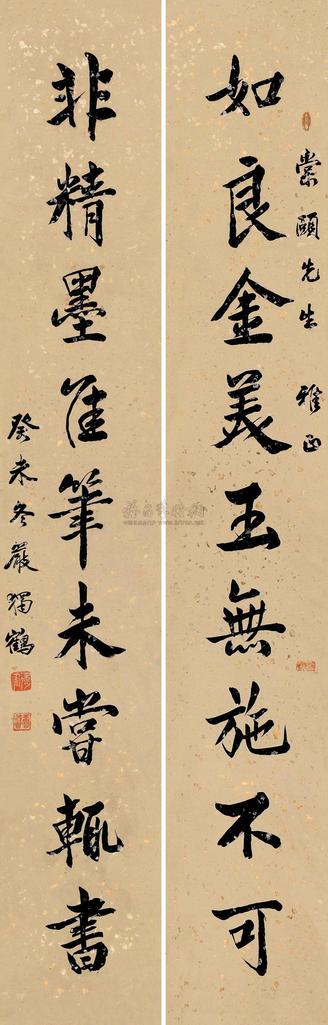 如良金美玉無施不可
棠頤先生 雅正
非精墨佳筆未嘗輒書
癸未冬嚴獨鶴